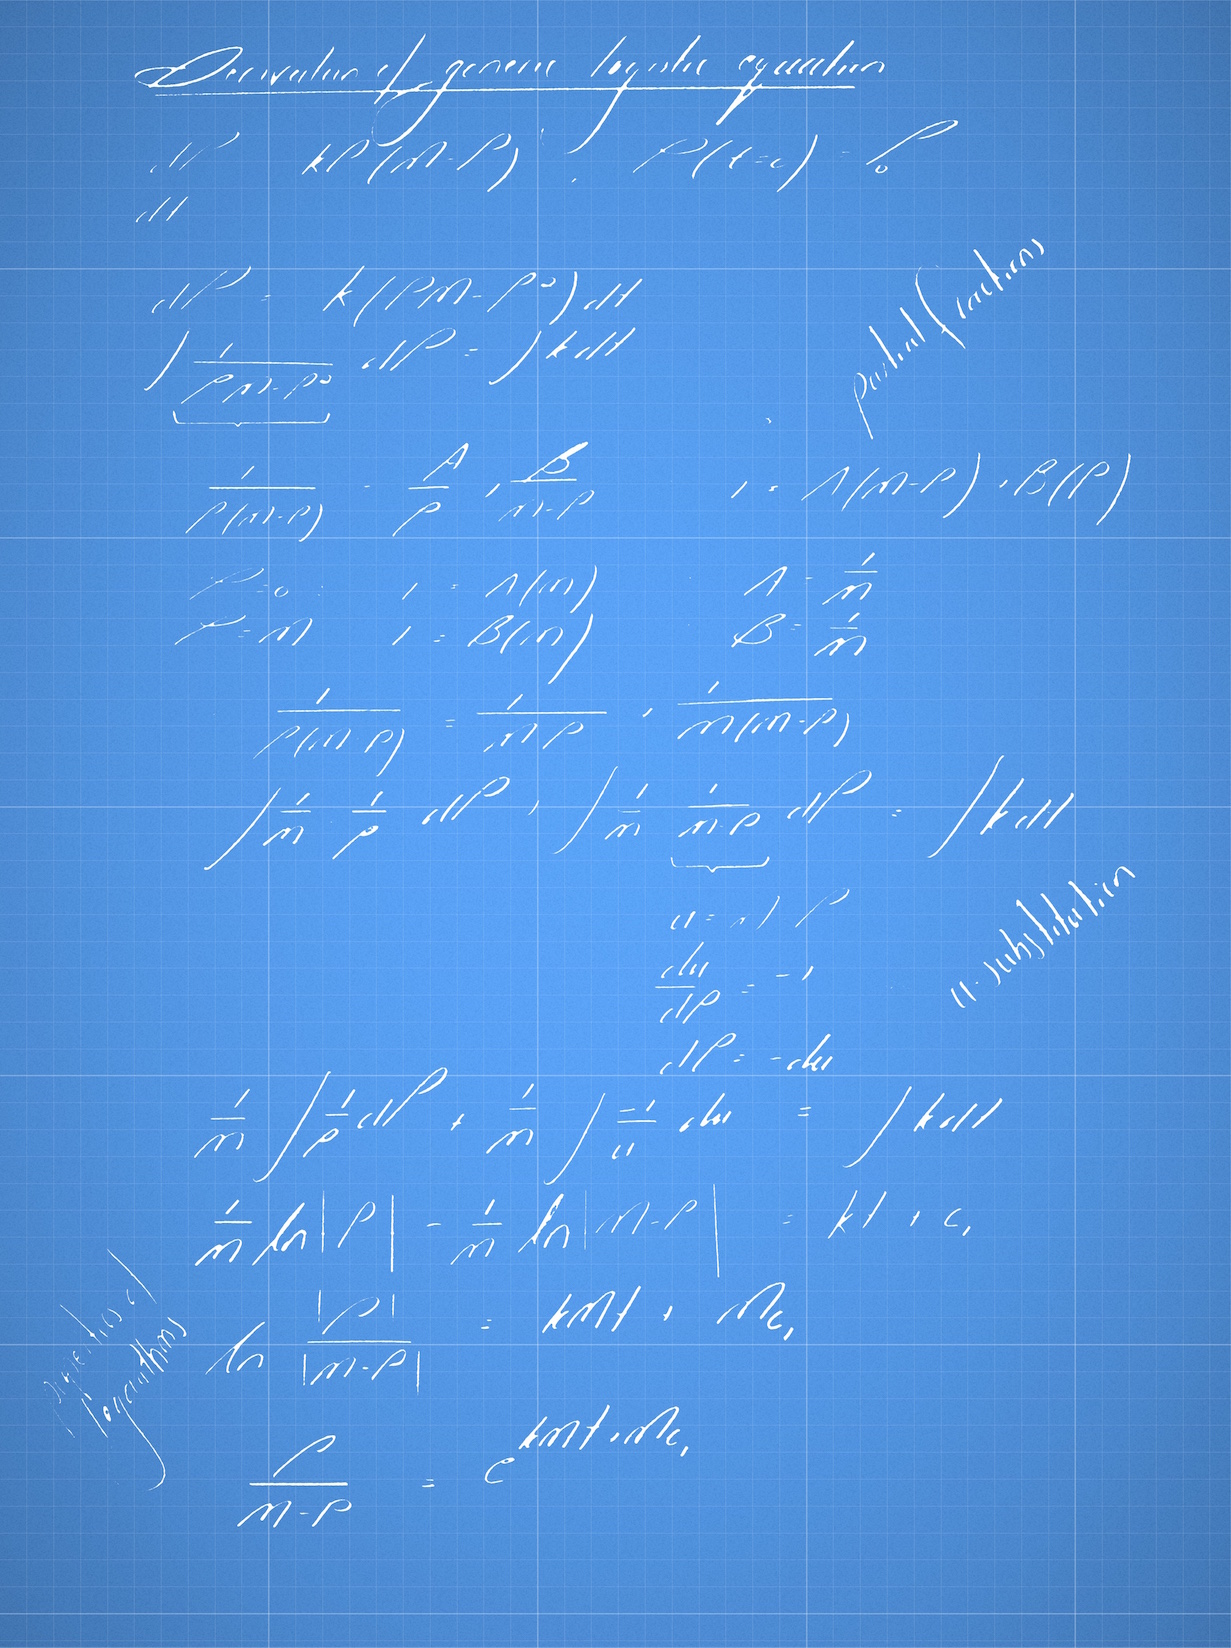 Derivation of generic logistic equation
dP/dt = kP(M-P), P(t=0) = P₀
dP = k(PM-P²)dt
partial fractions
∫ 1/(PM-P²) dP = ∫ kdt
1/(P(M-P)) = A/P + B/(M-P) 1 = A(M-P) + B(P)
P=0: 1 = A(M) A = 1/M
P=M 1 = B(M) B = 1/M
1/(P(M-P)) = 1/(MP) + 1/(M(M-P))
∫ 1/M · 1/P dP + ∫ 1/M 1/(M-P) dP = ∫ kdt
u = M-P
u-substitution
du/dP = -1
dP = -du
1/M ∫ 1/P dP + 1/M ∫ -1/u du = ∫ kdt
1/M ln|P| - 1/M ln|M-P| = kt + c₁
properties of
logarithms
ln |P|/|M-P| = kMt + Mc₁
P/(M-P) = e^(kMt+Mc₁)